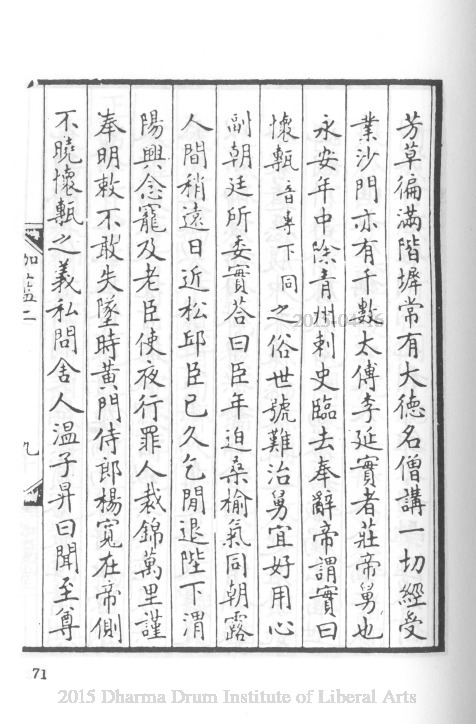 芳草徧滿階墀常有大德名僧講一切經受
業沙門亦有千數太傅李延實者莊帝舅也
永安年中除青州刺史臨去奉辭帝謂實曰
懷甎音專下同之俗世號難治舅宜好用心
副朝廷所委實荅曰臣年迫桑榆氣同朝露
人間稍遠日近松邱臣已久乞閒退陛下渭
陽興念寵及老臣使夜行罪人裁錦萬里謹
奉明敕不敢失墜時黄門侍郎楊寬在帝側
不曉懷甎之義私問舍人温子昇曰聞至尊
伽藍二
九
71
2015-04-16
2015 Dharma Drum Institute of Liberal Arts